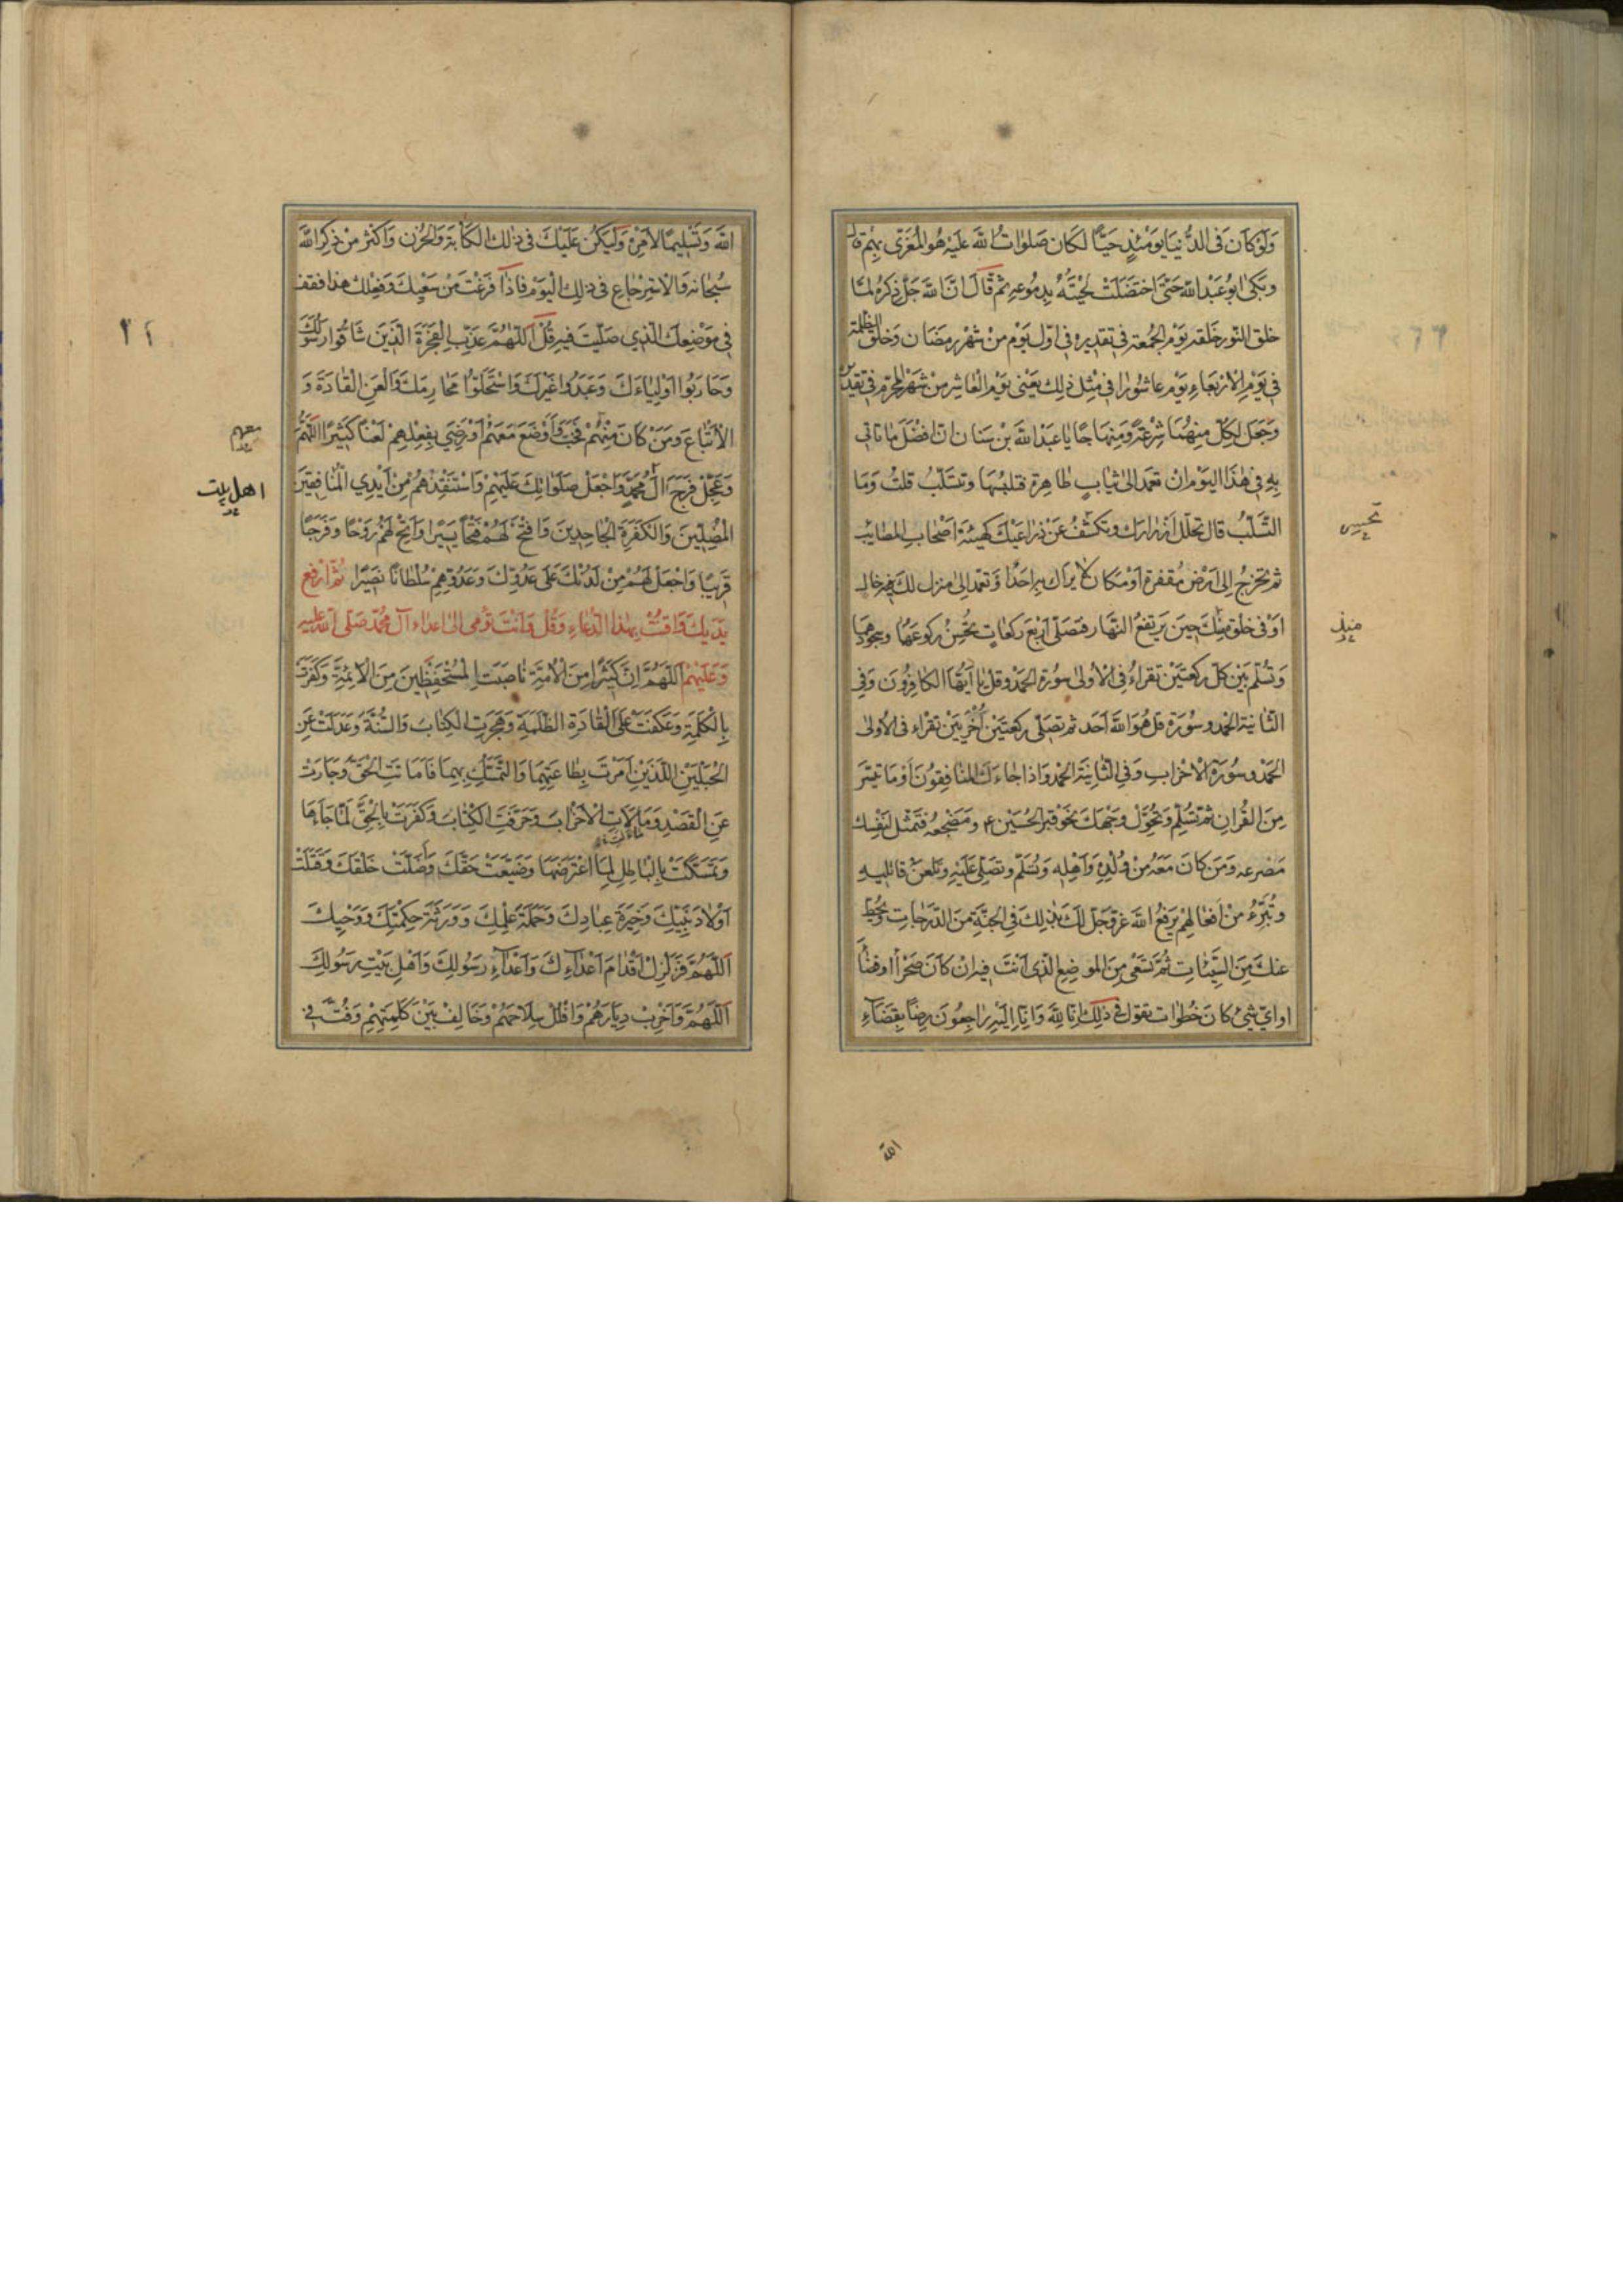 وَلَوْ كَانَ فِى الدُّنْيَا يَوْمَئِذٍ حَيًّا لَكَانَ صَلَوَاتُ اللَّهِ عَلَيْهِ هُوَ الْمُعَزّى بِهِمْ قال
وبَكى ابُوعَبْدِ اللَّه حَتّى اخْضَلَّتْ لِحْيَتُهُ بِدِمُوعِهِ ثم قَالَ انَّ اللَّهَ جَلَّ ذِكرُهُ لمّا
خلق النّور خَلقه يَوْم الجُمُعة فى تقديره فى اوّل يَوْم مِنْ شَهْر رمَضَان وَخلق الظلمة
فى يَوْمِ الارْبَعَاءِ يَوْم عاشُورا فى مِثْل ذلِك يَعْنى يَوْم الْعَاشر مِنْ شَهْرِ المحرّم فى تقديره
وَجَعَلَ لِكلّ مِنهُمَا شِرْعَةً وَمِنهَاجًا يا عَبْدَ اللَّه بْنِ سِنَان انّ افْضَلَ مَا تاتى
بِهِ فى هٰذَا اليَوْم انْ تعمَدَ الىٰ ثيَابٍ طاهِرة فتلبسُهَا وتتسَلّبُ قلتُ وَمَا
التَّسَلّبُ قال تحلّل اَزرارك وتكشّفُ عَنْ ذِراعَيْك كهَيْئَةِ اَصْحٰابِ المصَايب
ثم تخرجُ اِلى اَرْض مُقفرة اَوْ مَكان لا يَراك بِهِ احَدٌ اوْ تعمدُ اِلىٰ منزل لكَ خال
اَوْ فى خلْوة مُنذُ حِينَ يَرتفعُ النّهَار فتصَلّى اَرْبَعَ رَكعاتٍ تُحْسِنُ ركوعَهَا وسجُودهَا
وَتُسَلّم بَيْن كلّ ركعتَيْن تقراءُ فى الْاُولىٰ سُورَةَ الحَمْد وَقُلْ يا اَيّهَا الكافِرُونَ وَفى
الثّانيَةِ الحَمْد وسُورَة قل هُوَ اللَّهُ اَحَد ثم تصَلّى ركعتيْن اُخْرَيَيْن تقراء فى الاُولىٰ
الحَمْد وسُورَة الْاحْزابِ وَفى الثّانِيَة الحَمْد وَاذا جَاءَكَ المنافِقُونَ اَوْ مَا تيَسّرَ
مِنَ القُرانِ ثمّ تُسَلِّم وَتُحَوِّل وَجْهَكَ نَحْو قبْرِ الحُسَين ع ومَضْجعه فتمَثّل لنَفْسِكَ
مَصْرعه وَمَن كانَ مَعَهُ مِنْ وُلْدِهِ وَاَهْلِه وَتُسَلّم وتصَلّى عَلَيْه وَتلعَنُ قاتليه
وتُبَرّءُ مِنْ اَفعٰالهِمْ يَرفعُ اللَّه عزّ وَجَلّ لكَ بذلِكَ فى الجنّةِ مِنَ الدّرَجَات ويَحُطّ
عنكَ مِنَ السّيّئاتِ ثُمَّ تَسْعٰى مِنَ المَوضِع الّذى اَنْتَ فيهِ ان كانَ صَحْرَاءً اوفضاءً
اواىّ شئ كانَ خُطُوات تقول فى ذلِكَ اِنّا لِلَّهِ وَانّا اِلَيْهِ رٰاجِعُونَ رِضًا بِقضَاءِ
تحسين
منذ
الله
اللَّه وَتَسْلِيمًا لاَمْرِهِ وَلْيَكُنْ عَلَيْكَ فى ذلِكَ الكَآبَة وَالحُزْن وَاَكْثِرْ مِنْ ذِكرِ اللَّهِ
سُبحٰانه وَالاسْتِرجَاع فى ذلِكَ اليَوْم فَاذَا فرغتَ مِنْ سَعْيِكَ وَفِعْلِكَ هٰذَا فقِف
فى مَوْضِعِكَ الّذى صَلّيتَ فيهِ ثمّ قُلْ اَللّٰهُمَّ عَذِّبِ الْفَجَرَةَ الّذينَ شَاقُّوا رَسُولَكَ
وَحَارَبُوا اوْلِيٰاءَكَ وَعَبَدُوا غَيْرَكَ وَاسْتَحَلّوُا مَحَارِمَكَ وَالْعَنِ الْقٰادَةَ وَ
الْاَتْبٰاعَ وَمَنْ كانَ مِنْهُمْ فَخَبَّ وَاَوْضَعَ مَعَهُمْ اَوْ رَضِىَ بِفِعْلِهِمْ لَعْنًا كَثِيرًا اَللَّهُمَّ
وَعَجِّلْ فَرَجَ الِ مُحَمَّدٍ وَاجْعَلْ صَلَوٰاتِكَ عَلَيْهِمْ وَاسْتَنْقِذْهُمْ مِنْ اَيْدِى الْمُنٰافِقينَ
الْمُضِلّينَ وَالكَفَرَةِ الْجٰاحِدِينَ وَافْتَحْ لَهُمْ فَتْحًا يَسِيرًا وَاَتِحْ لَهُمْ رَوْحًا وَفَرَجًا
قَرِيبًا وَاجْعَلْ لَهُمْ مِنْ لَدُنْكَ عَلىٰ عَدُوِّكَ وَعَدُوّهِمْ سُلْطَانًا نَصِيرًا ثُمّ ارْفَع
يَدَيْكَ وَاقْنُتْ بِهٰذا الدّعَاءِ وَقُلْ وَاَنْتَ تُومى الىٰ اعداء آل مُحمّد صَلّى اللَّه عليه
وَعَلَيْهِمْ اَللّهُمَّ اِنَّ كَثِيْرًا مِنَ الْاُمَّةِ نٰاصَبَتِ الْمُسْتَحْفَظِينَ مِنَ الْاَئِمَّةِ وَكَفَرَتْ
بِالْكَلِمَةِ وَعَكَفَتْ عَلَى الْقٰادَةِ الظَّلَمَةِ وَهَجَرَتِ الْكِتٰابَ وَالسُّنَّةَ وَعَدَلَتْ عَنِ
الْحَبْلَيْنِ اللَّذَيْنِ اَمَرْتَ بِطٰاعَتِهِمَا وَالتَّمَسُّكِ بِهِمَا فَاَمَاتَتِ الْحَقَّ وَجَارَتْ
عَنِ الْقَصْدِ وَمَالَاَتِ الْاَحْزٰابَ وَحَرَّفَتِ الْكِتٰابَ وَكَفَرَتْ بِالْحَقِّ لَمّا جَاءَهَا
وَتَمَسَّكَتْ بِالْبَاطِلِ لَمّا اعْتَرَضَهَا وَضَيَّعَتْ حَقَّكَ وَاَضَلَّتْ خَلْقَكَ وَقَتَلَتْ
اَوْلادَ نَبِيِّكَ وَخِيَرَةَ عِبَادِكَ وَحَمَلَةَ عِلْمِكَ وَوَرَثَةَ حِكْمَتِكَ وَوَحْيِكَ
اَللّهُمَّ فَزَلْزِلْ اَقْدٰامَ اَعْدٰآءِكَ وَاَعْدٰآءِ رَسُولِكَ وَاَهْلِ بَيْتِ رَسُولِكَ
اَللّهُمَّ وَاَخْرِبْ دِيٰارَهُمْ وَافْلُلْ سِلَاحَهُمْ وَخَالِفْ بَيْنَ كَلِمَتِهِمْ وَفُتَّ فى
معهم
اهل بيت